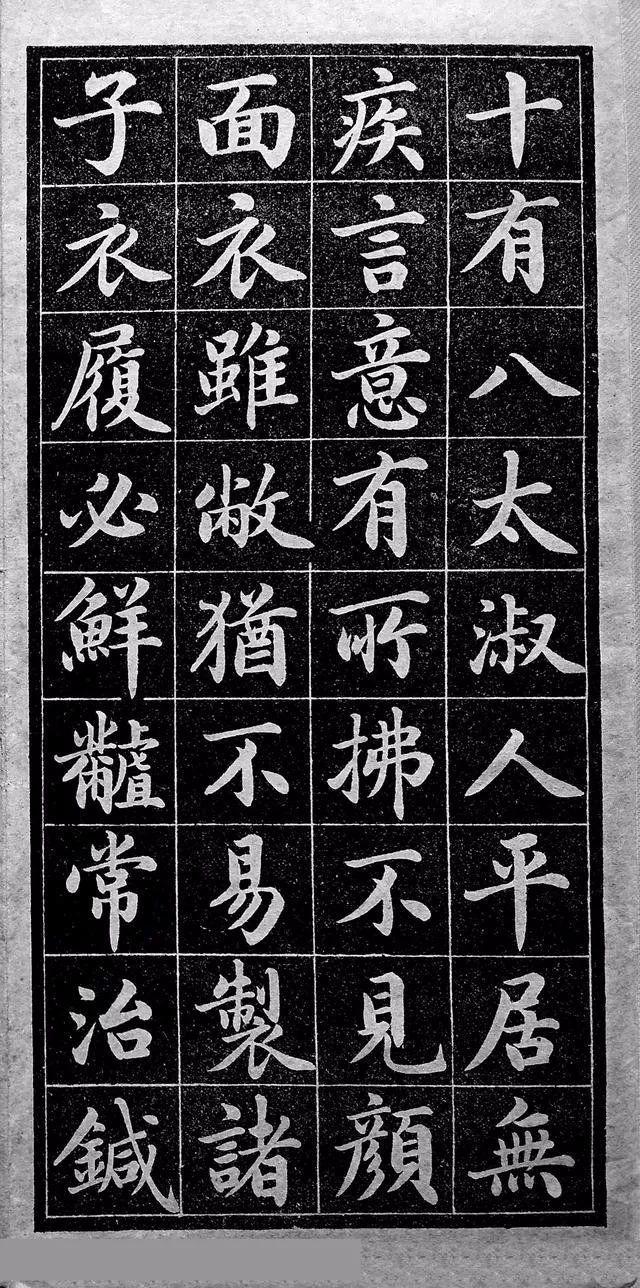 十有八太淑人平居無
疾言意有所拂不見顏
面衣雖敝猶不易製諸
子衣履必鮮𪓐常治鍼